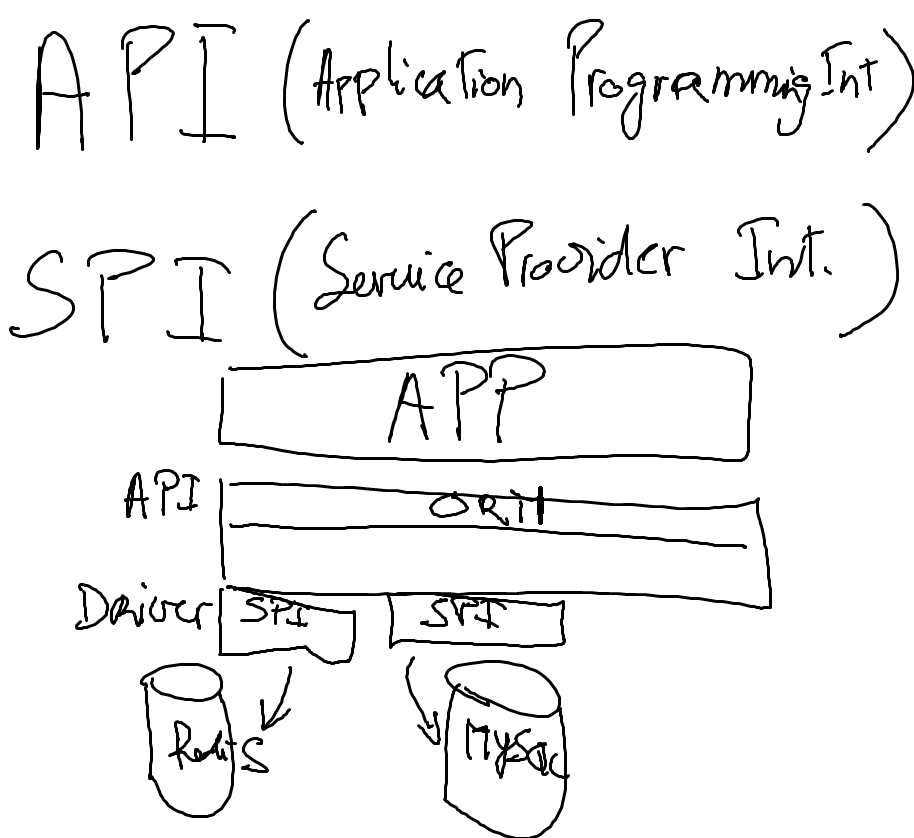 API (Application Programming Int)
SPI (Service Provider Int.
)
APP
API ORM
Driver SPI SPI
Redis MySQL